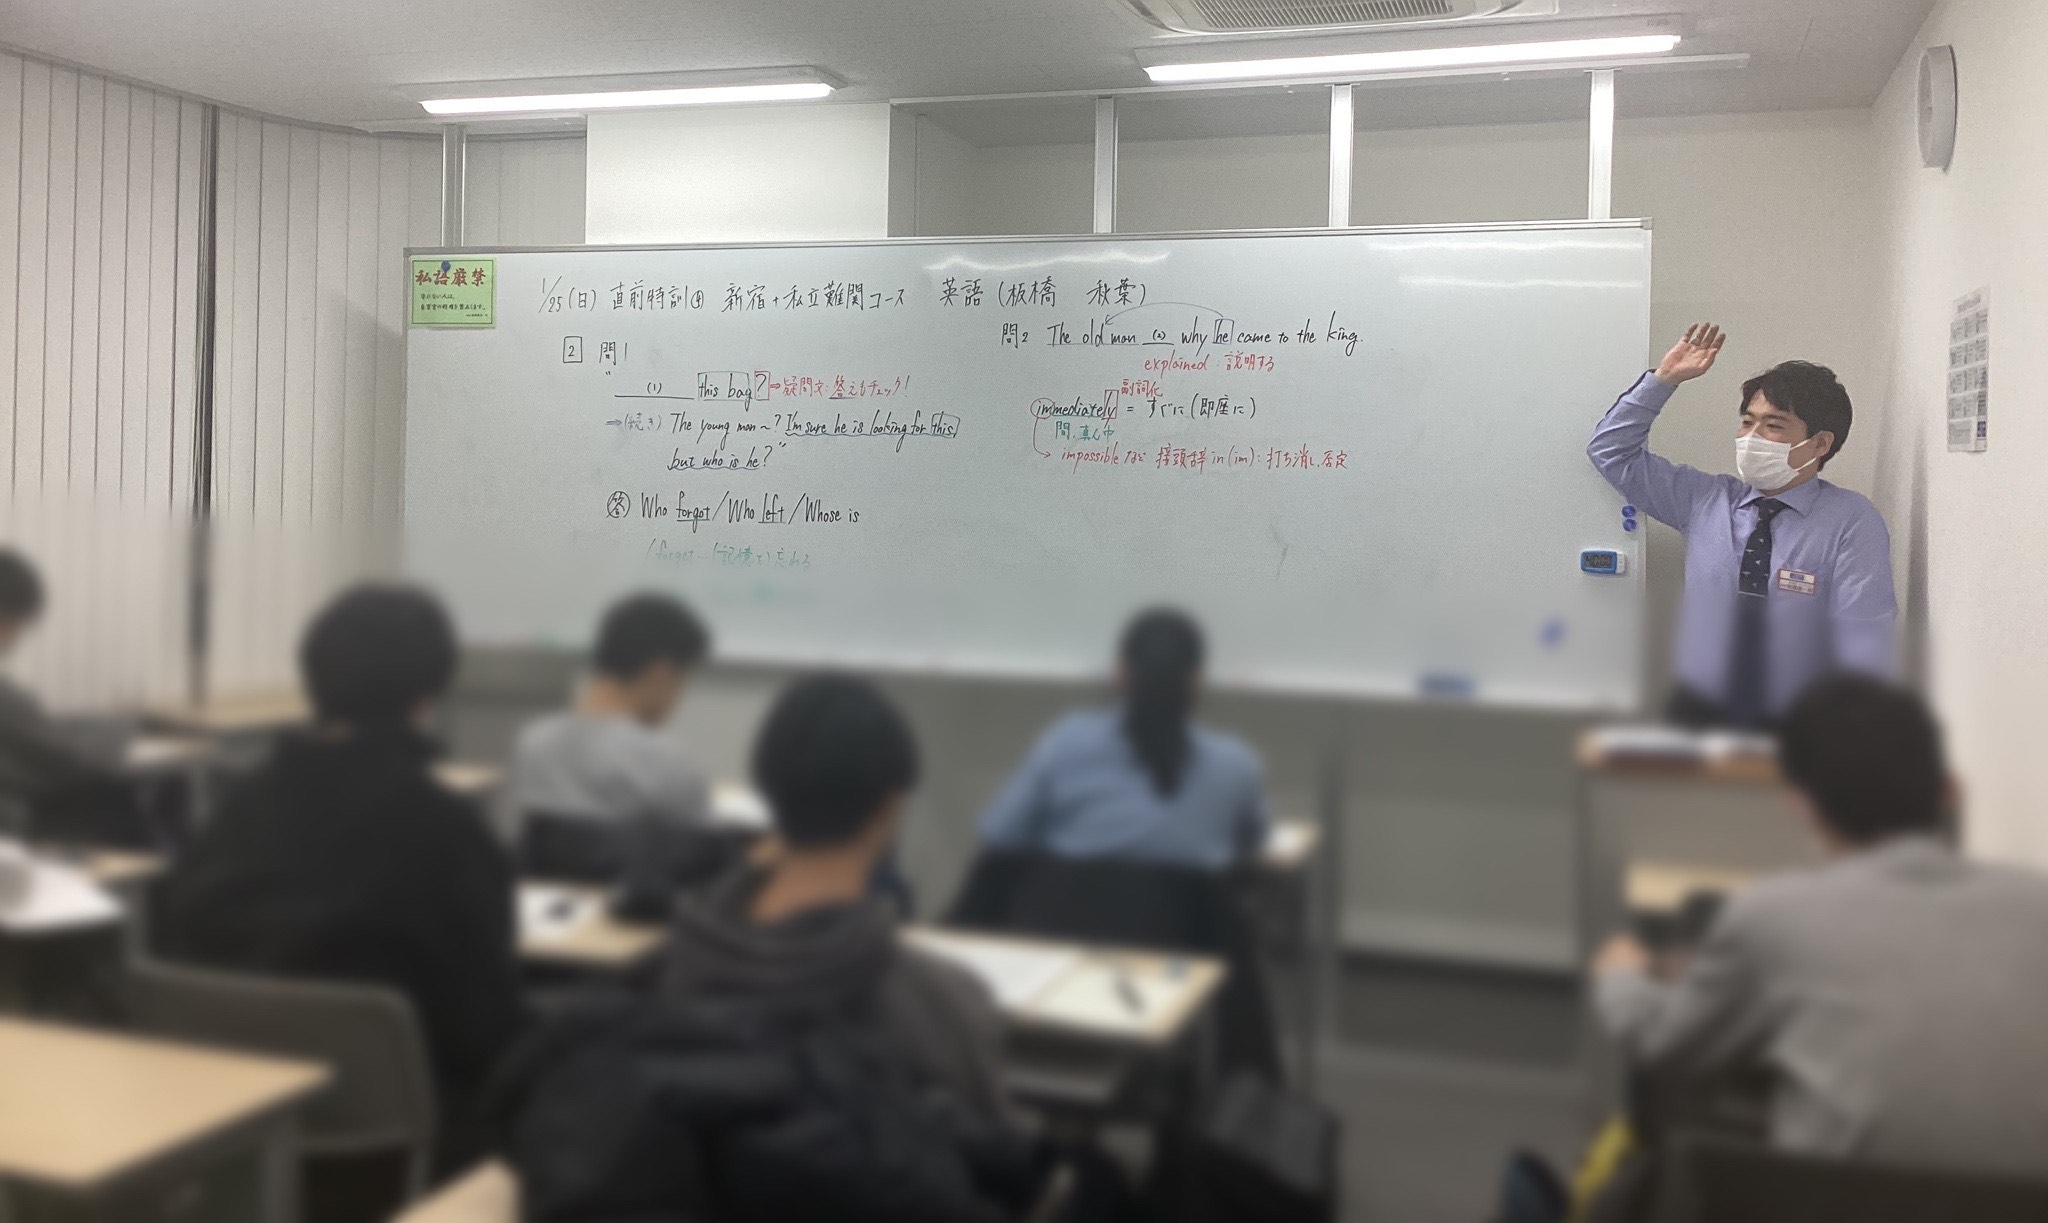 私語厳禁
1/25(日) 直前特訓④ 新宿+私立難関コース 英語(板橋 秋葉)
2 問1
" (1) this bag ? ⇒疑問文:答えもチェック!
⇒(続き) The young man~? I'm sure he is looking for this,
but who is he?"
答 Who forgot/Who left/Whose is
forget…(記憶を)忘れる
問2 The old man (2) why he came to the king.
explained:説明する
副詞化
immediately = すぐに(即座に)
間、真ん中
impossibleなど 接頭辞in(im):打ち消し、否定